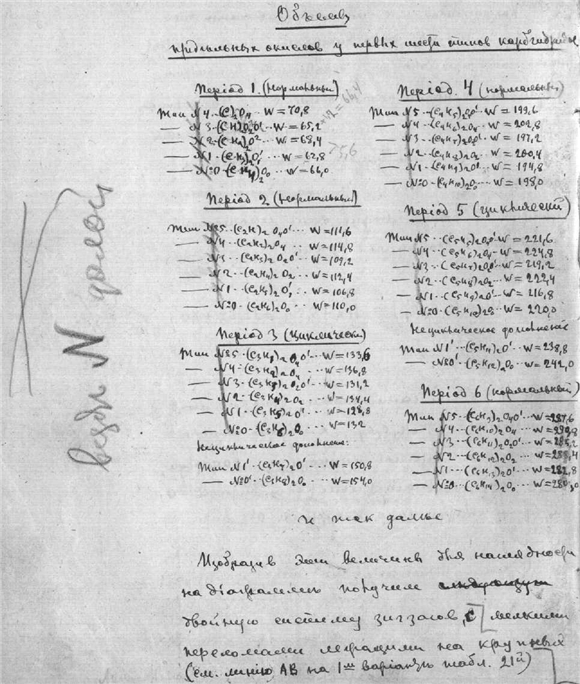 Объемы
предѣльных окисловъ у первых шести типов карбгидридов
Періодъ 1 (нормальный)
Тип N4 · (C)₂O₄ · · W = 70,8
— N3 · (CH)₂O₂O' · W = 65,2
— N2 · (CH₂)₂O² · · W = 68,4
— N1 · (CH₃)₂O' · · W = 62,8
— N0 · (CH₄)₂O₀ · · W = 66,0
Періодъ 2 (нормальный)
Тип N5 · (C₂H)₂O₄O' · · W = 111,6
— N4 · · (C₂H₂)₂O₄ · · W = 114,8
— N3 · · (C₂H₃)₂O₂O' · · W = 109,2
— N2 · · (C₂H₄)₂O₂ · · W = 112,4
— N1 · · (C₂H₅)₂O' · · W = 106,8
— N0 · · (C₂H₆)₂O₀ · · W = 110,0
Періодъ 3 (циклически)
Тип N5 · · (C₃H₃)₂O₄O' · · W = 133,6
— N4 · · (C₃H₄)₂O₄ · · W = 136,8
— N3 · · (C₃H₅)₂O₂O' · · W = 131,2
— N2 · · (C₃H₄)₂O₂ · · W = 134,4
— N1 · · (C₃H₅)₂O' · · W = 128,8
— N0 · · (C₃H₆)₂O₀ · · W = 132
Нециклическое дополнение:
Тип N1' · · (C₃H₇)₂O' · · W = 150,8
— N0' · · (C₃H₈)₂O₀ · · W = 154,0
Періодъ 4 (нормальный)
Тип N5 · · (C₄H₅)₂O₄O' · W = 199,6
— N4 · · (C₄H₆)₂O₄ · · W = 202,8
— N3 · · (C₄H₇)₂O₂O' · W = 197,2
— N2 · · (C₄H₈)₂O₂ · · W = 200,4
— N1 · · (C₄H₉)₂O' · · W = 194,8
— N0 · · (C₄H₁₀)₂O₀ · · W = 198,0
Періодъ 5 (циклическій)
Тип N5 · · (C₅H₅)₂O₄O' · W = 221,6
— N4 · · (C₅H₆)₂O₄ · · W = 224,8
— N3 · · (C₅H₇)₂O₂O' · W = 219,2
— N2 · · (C₅H₈)₂O₂ · · W = 222,4
— N1 · · (C₅H₉)₂O' · · W = 216,8
— N0 · · (C₅H₁₀)₂O₀ · · W = 220,0
Нециклическое дополнение
Тип N1' · · (C₅H₁₁)₂O' · · W = 238,8
— N0' · · (C₅H₁₂)₂O₀ · · W = 242,0
Періодъ 6 (нормальный)
Тип N5 · · (C₆H₉)₂O₄O' · · W = 287,6
— N4 · · (C₆H₁₀)₂O₄ · · W = 290,8
— N3 · · (C₆H₁₁)₂O₂O' · · W = 285,2
— N2 · · (C₆H₁₂)₂O₂ · · W = 288,4
— N1 · · (C₆H₁₃)₂O' · · W = 282,8
— N0 · · (C₆H₁₄)₂O₀ · · W = 286,0
и так далѣе
Изобразив эти величины для наглядности
на діаграммѣ получим
двойную систему зигзагов, с мелкими
переломами на крупных
(см. линію AB на 1ᵐ варіанте табл. 21й)
вездѣ N долой